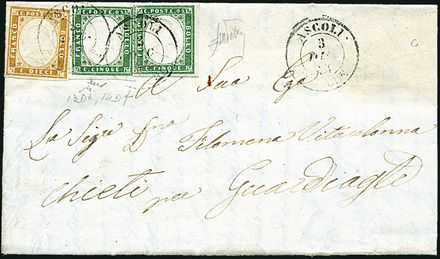 C. POSTE
FRANCO
BOLLO
C. DIECI
C. POSTE
FRANCO
BOLLO
C. CINQUE
C. POSTE
FRANCO
BOLLO
C. CINQUE
ASCOLI
ASCOLI
ASCOLI
3
A Sua Ecc
La Sigra Dna Filomena Vitacolonna
Chieti per Guardiagle